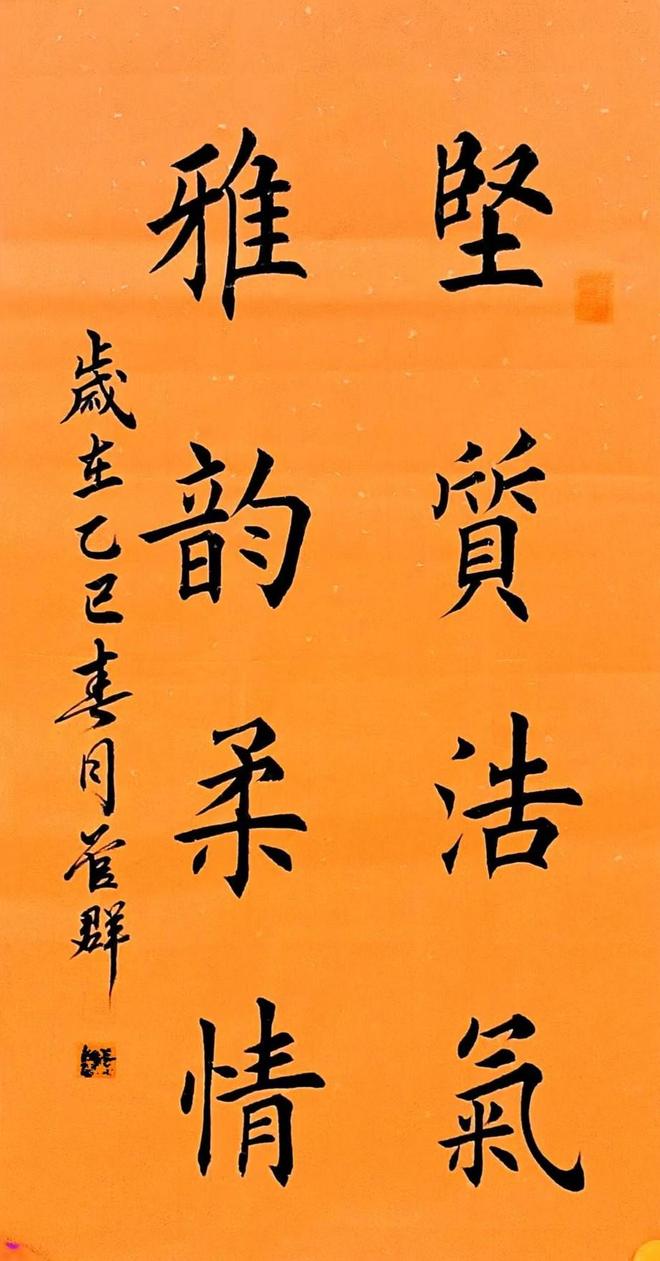 堅質浩氣
雅韵柔情
歲在乙巳春月管群